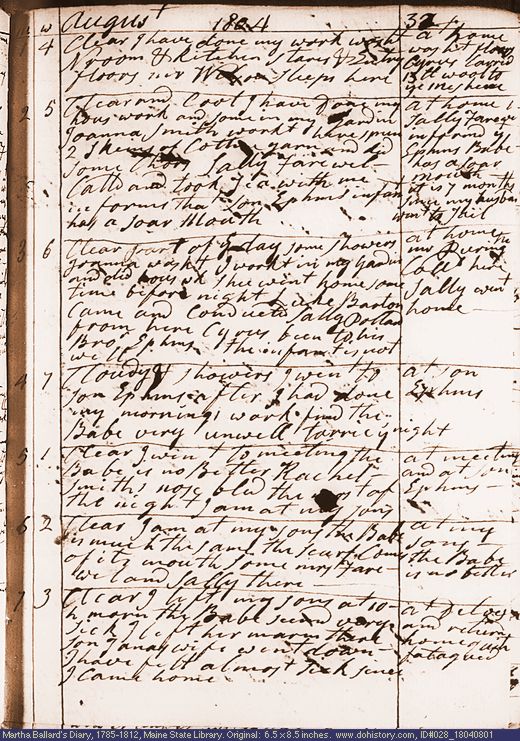 August 1804
1 4 Clear I have done my work washt at home
room & kitchen stares & Entry washt floors
floors mr sleeps here
2 5 Clear and Cool I have done my at home
hous work and some in my gardin
Joanna Smith workt I have spun
2 Skeins of Cotton yarn and did
some Sally Farewel
Calld and took Tea with me
informs that son Ephms infant
has a soar Mouth
Ephms Babe
has a soar
mouth
it is 7 months
since my husban
went to
3 6 Clear part of ye day some showers at home
Joanna washt I workt in my gardin
and did hous wk she went home some Calld here
time before night Barton Sally went
Came and Conducted Sally Pollard home
from here Cyrus been to his
Bror Ephms the infant is not
well
4 7 Cloudy & showers I went to at son
son Ephms after I had done Ephms
my morning work find the
Babe very unwell tarried night
5 1 Clear I went to meeting the at meeting
Babe is no Better Rachel and at son
Smiths nose bled the most of Ephms
the night I am at my sons
6 2 Clear I am at my sons the Babe at my
is much the same the scurf Comes sons
of its mouth some mrs Fare the Babe
wel and Sally there is no better
7 3 Clear I left my sons at 10
h morn the Babe seemd very and returnd
sick I left her marm there home
son Jonas wife went down fatagued
I have felt almost sick since
I came home
Martha Ballard's Diary, 1785-1812, Maine State Library. Original: 6.5 x 8.5 inches. www.dohistory.com, ID#028_18040801